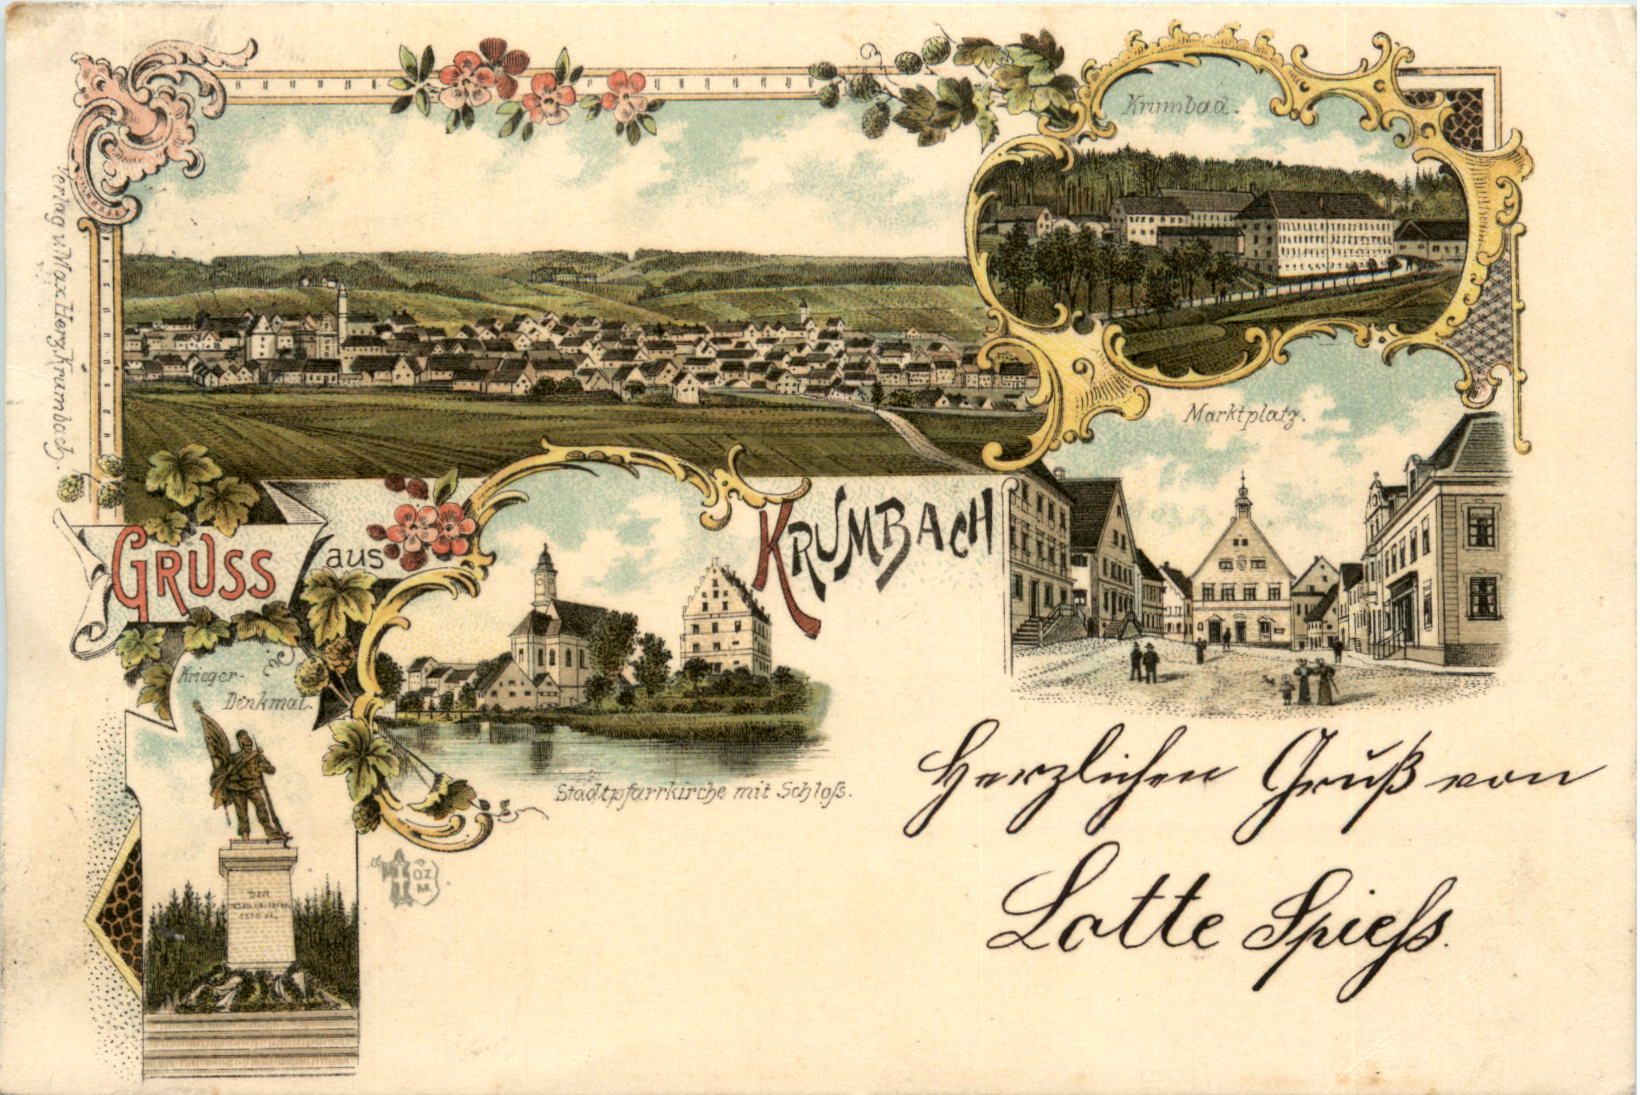 Krumbad.
Verlag v. Max Herz, Krumbach.
Marktplatz.
GRUSS aus KRUMBACH
Krieger-
Denkmal.
Stadtpfarrkirche mit Schloß.
Herzlichen Gruß von
Lotte Spieß.
ÖZ.
M.